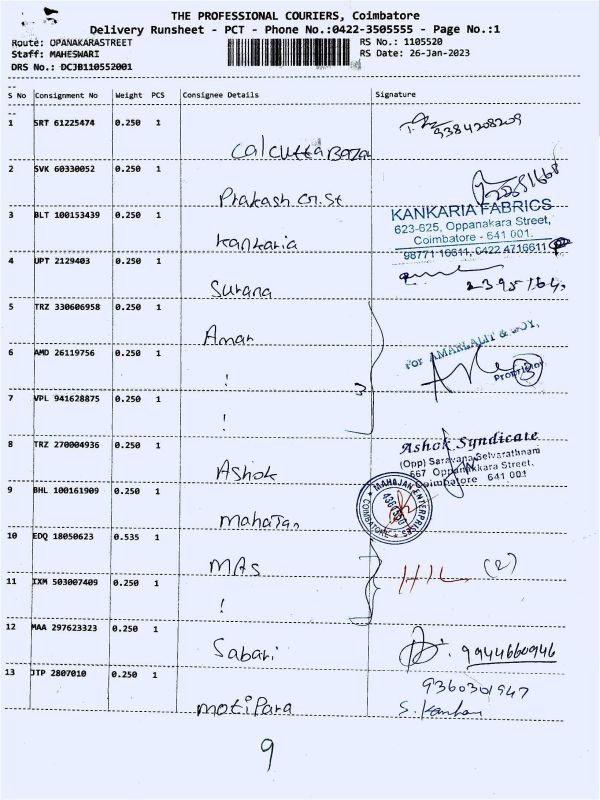 THE PROFESSIONAL COURIERS, Coimbatore
Delivery Runsheet - PCT - Phone No.:0422-3505555 - Page No.:1
Route: OPANAKARASTREET RS No.: 1105520
Staff: MAHESWARI RS Date: 26-Jan-2023
DRS No.: DCJB110552001
S No Consignment No Weight PCS Consignee Details Signature
1 SRT 61225474 0.250 1 Calcutta Bazar 9384208209
2 SVK 60330052 0.250 1 Prakash Gr.St
3 BLT 100153439 0.250 1 Kankaria
KANKARIA FABRICS
623-625, Oppanakara Street,
Coimbatore - 641 001.
98771 16611, 0422 4716611
4 UPT 2129403 0.250 1 Surana
5 TRZ 330606958 0.250 1 Aman
For AMARLALIT & COY,
Proprietor
6 AMD 26119756 0.250 1 ! 3 3
7 VPL 941628875 0.250 1 !
8 TRZ 270004936 0.250 1 Ashok
Ashok Syndicate
(Opp) Saravana Selvarathnam
667 Oppanakkara Street,
Coimbatore 641 001
9 BHL 100161909 0.250 1 Mahajan
MAHAJAN ENTERPRISES
COIMBATORE
10 EDQ 18050623 0.535 1 MAS (2)
11 IXM 503007409 0.250 1 !
12 MAA 297623323 0.250 1 Sabari 9944660946
13 JTP 2807010 0.250 1 motipara 9360301947
9